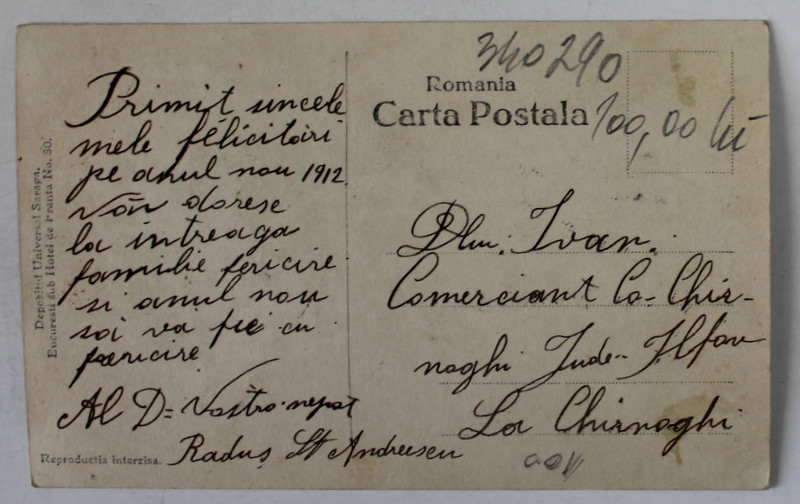 Depozitul Universal Saraga,
Bucuresti sub Hotel de Franta No. 30.
Primit sincele
mele félicitari
pe anul nou 1912.
Văn doresc
la intreaga
familie fericire
si anul nou
sai va fie cu
fericire
Al D= Vostro nepot
Raduș St Andreescu
Reproductia interzisa.
340 290
Romania
Carta Postala
100,00 lei
Dlui. Ivan.
Comerciant Co- Chir-
noghi Jude.. Ilfov
La Chirnoghi